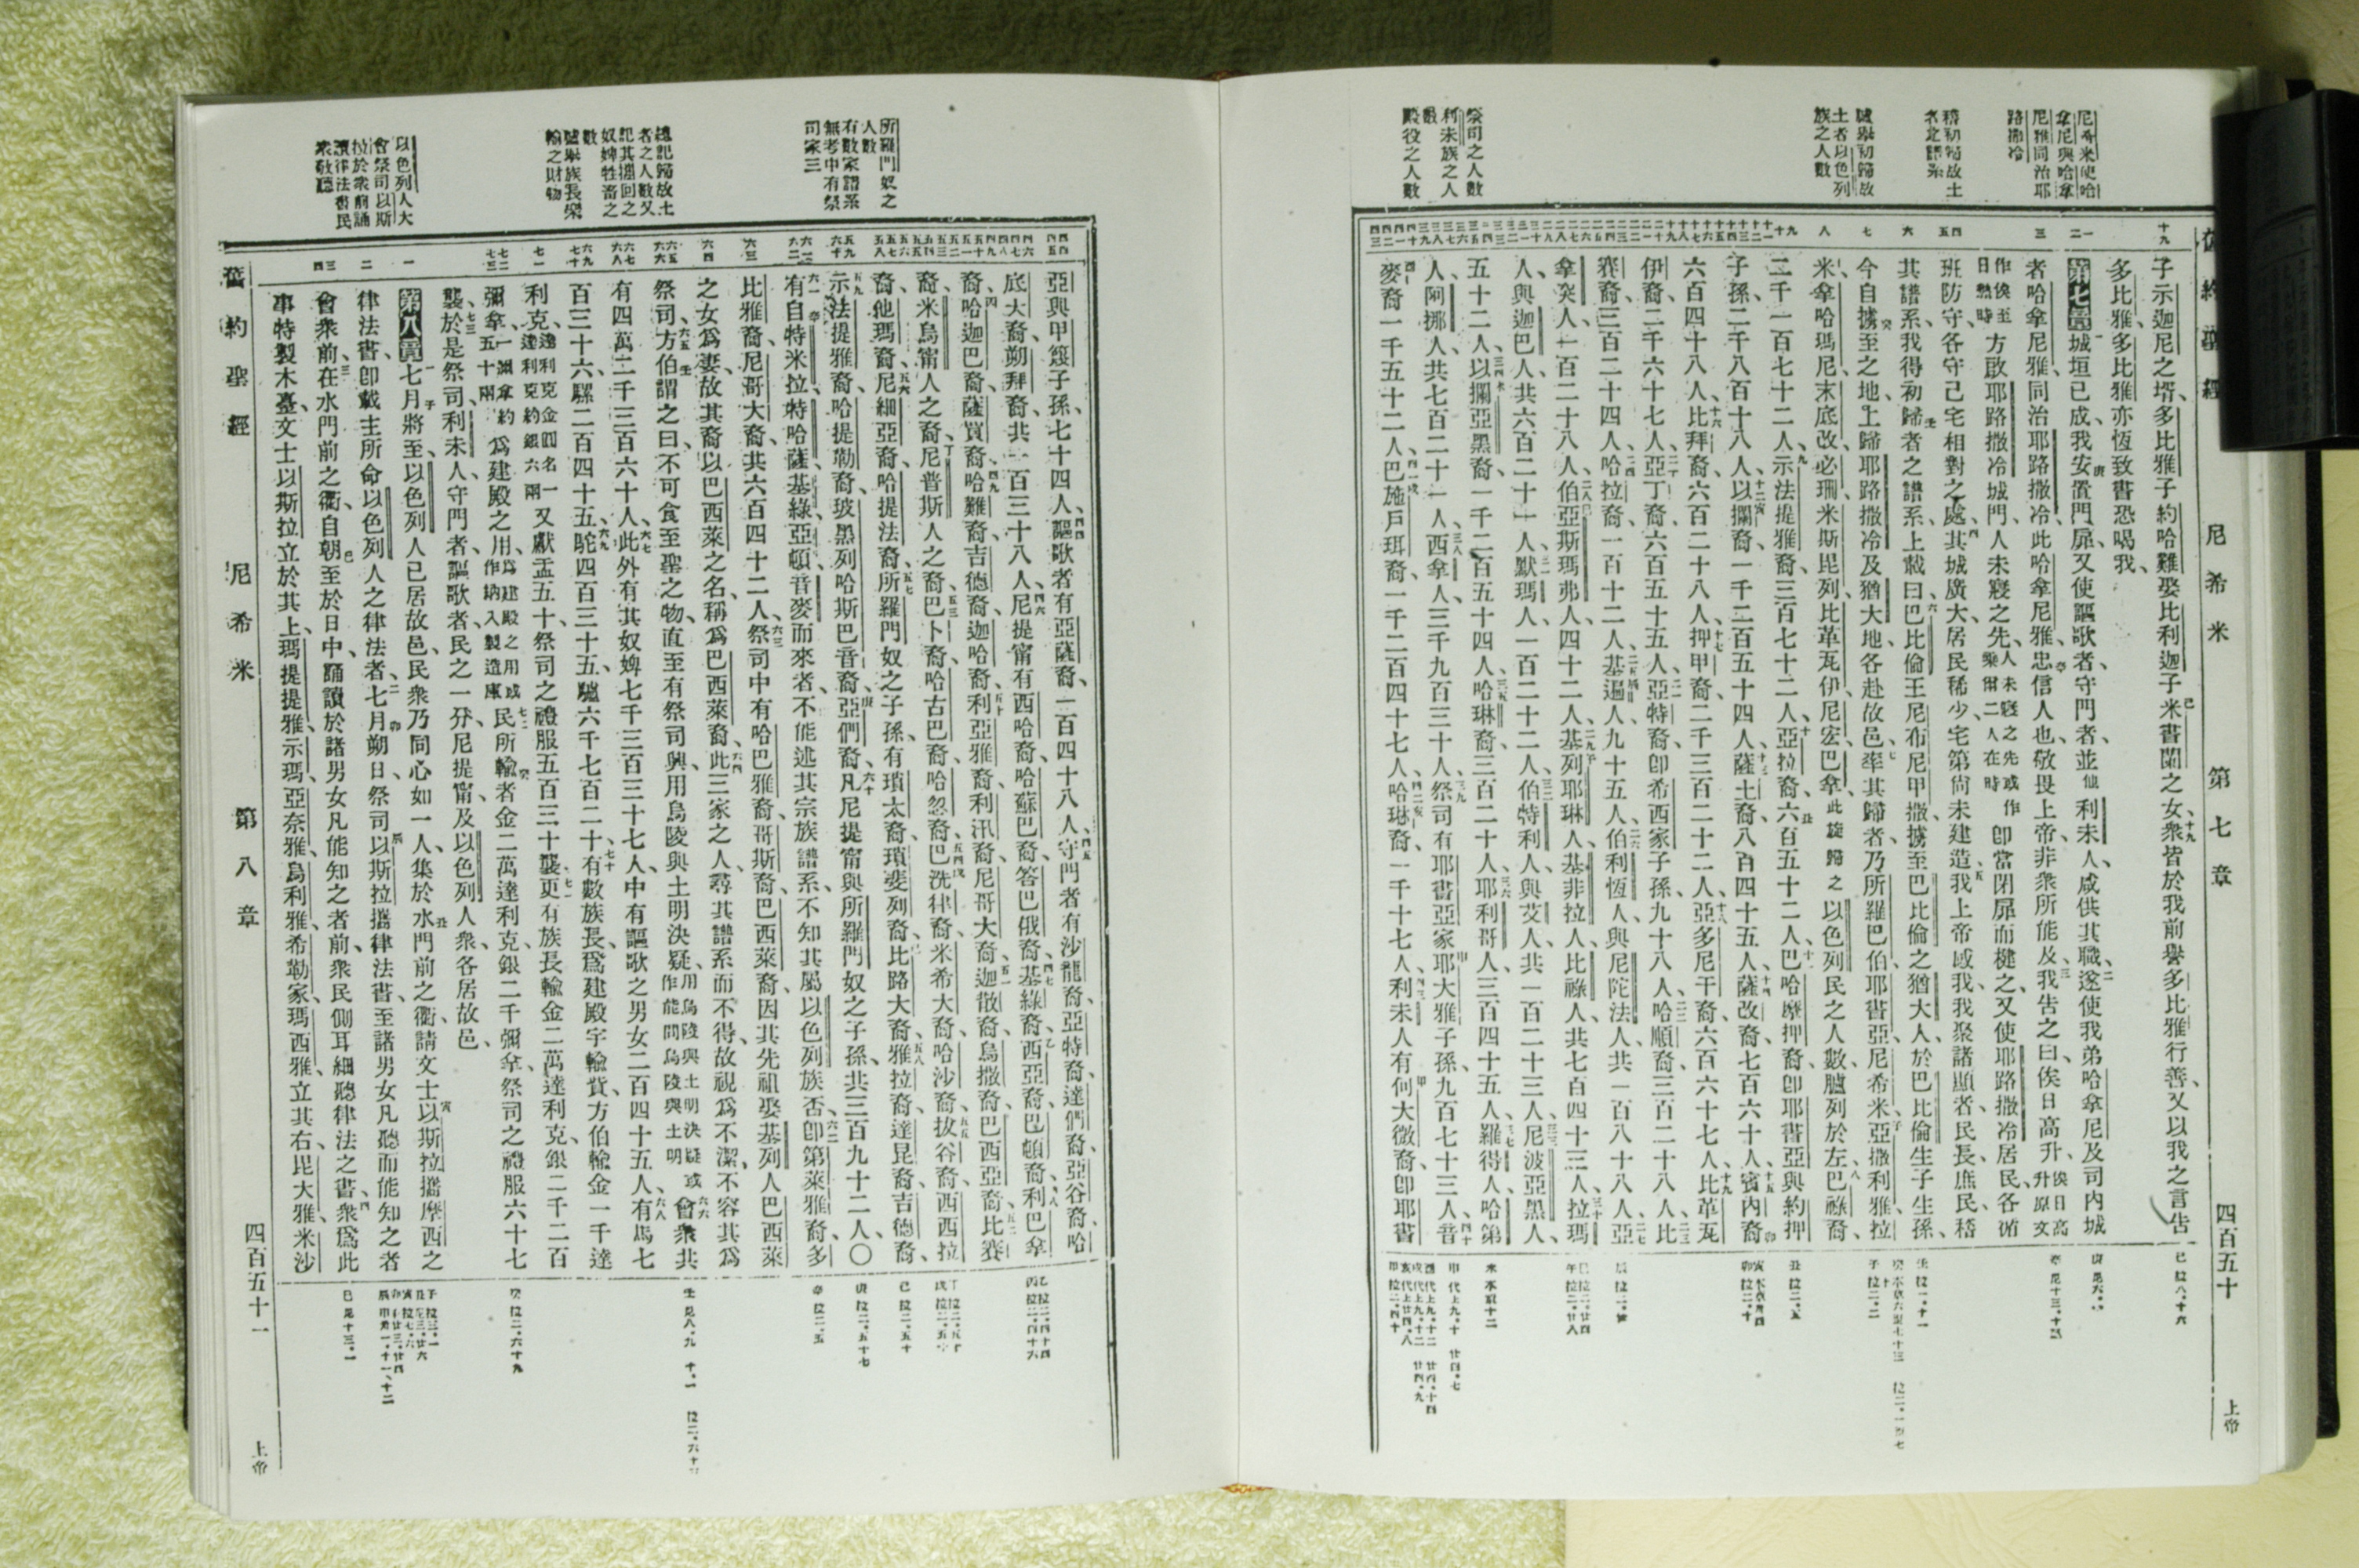 尼希米使哈
拿尼與哈拿
尼雅同治耶
路撒冷
稽初歸故土
者之譜系
臚舉初歸故
土者以色列
族之人數
祭司之人數
利未族之人
數
殿役之人數
尼希米
第七章
四百五十
上帝
子示迦尼之壻、多比雅子約哈難娶比利迦子米書闌之女、衆皆於我前譽多比雅行善、又以我之言告
多比雅、多比雅亦恆致書恐喝我、
第七章 城垣已成、我安置門扉、又使謳歌者、守門者、並他利未人、咸供其職、遂使我弟哈拿尼及司內城
者哈拿尼雅、同治耶路撒冷、此哈拿尼雅、忠信人也、敬畏上帝、非衆所能及、我告之曰、俟日高升、俟日高升原文
作俟至日熱時方啟耶路撒冷城門、人未寢之先、人未寢之先或作乘爾二人在時即當閉扉而楗之、又使耶路撒冷居民、各循
班防守、各守己宅相對之處、其城廣大、居民稀少、宅第尚未建造、我上帝感我、我聚諸顯者、民長、庶民、稽
其譜系、我得初歸者之譜系、上載曰、巴比倫王尼布尼甲撒、擄至巴比倫之猶大人、於巴比倫生子生孫、
今自擄至之地、上歸耶路撒冷及猶大地、各赴故邑、率其歸者、乃所羅巴伯、耶書亞、尼希米、亞撒利雅、拉
米、拿哈瑪尼、末底改、必珊、米斯毘列、比革瓦伊、尼宏、巴拿、此旋歸之以色列民之人數、臚列於左、巴祿裔、
二千一百七十二人、示法提雅裔、三百七十二人、亞拉裔、六百五十二人、巴哈摩押裔、即耶書亞與約押
子孫、二千八百十八人、以攔裔、一千二百五十四人、薩土裔、八百四十五人、薩改裔、七百六十人、賓內裔、
六百四十八人、比拜裔、六百二十八人、押甲裔、二千三百二十二人、亞多尼干裔、六百六十七人、比革瓦
伊裔、二千六十七人、亞丁裔、六百五十五人、亞特裔、即希西家子孫、九十八人、哈順裔、三百二十八人、比
賽裔、三百二十四人、哈拉裔、一百十二人、基遍人、九十五人、伯利恆人、與尼陀法人、共一百八十八人、亞
拿突人、一百二十八人、伯亞斯瑪弗人、四十二人、基列耶琳人、基非拉人、比祿人、共七百四十三人、拉瑪
人、與迦巴人、共六百二十一人、默瑪人、一百二十二人、伯特利人、與艾人、共一百二十三人、尼波亞黑人、
五十二人、以攔亞黑裔、一千二百五十四人、哈琳裔、三百二十人、耶利哥人、三百四十五人、羅得人、哈第
人、阿挪人、共七百二十一人、西拿人、三千九百三十人、祭司有耶書亞家耶大雅子孫、九百七十三人、音
麥裔、一千五十二人、巴施戶珥裔、一千二百四十七人、哈琳裔、一千十七人、利未人有何大微裔、即耶書
所羅門奴之
人數
有數家譜系
無考中有祭
司家三
總記歸故土
者之人數又
記其攜回之
奴婢牲畜之
數
臚舉族長樂
輸之財物
以色列人大
會祭司以斯
拉於衆前誦
讀律法書民
衆敬聽
亞與甲篾子孫、七十四人、謳歌者有亞薩裔、一百四十八人、守門者有沙龍裔、亞特裔、達們裔、亞谷裔、哈
底大裔、朔拜裔、共一百三十八人、尼提甯有西哈裔、哈蘇巴裔、答巴俄裔、基綠裔、西亞裔、巴頓裔、利巴拿
裔、哈迦巴裔、薩買裔、哈難裔、吉德裔、迦哈裔、利亞雅裔、利汛裔、尼哥大裔、迦散裔、烏撒裔、巴西亞裔、比賽
裔、米烏甯人之裔、尼普斯人之裔、巴卜裔、哈古巴裔、哈忽裔、巴洗律裔、米希大裔、哈沙裔、拔谷裔、西西拉
裔、他瑪裔、尼細亞裔、哈提法裔、所羅門奴之子孫、有瑣太裔、瑣斐列裔、比路大裔、雅拉裔、達昆裔、吉德裔、
示法提雅裔、哈提勒裔、玻黑列哈斯巴音裔、亞們裔、凡尼提甯與所羅門奴之子孫、共三百九十二人、〇
有自特米拉、特哈薩、基綠、亞頓、音麥而來者、不能述其宗族譜系、不知其屬以色列族否、即第萊雅裔、多
比雅裔、尼哥大裔、共六百四十二人、祭司中有哈巴雅裔、哥斯裔、巴西萊裔、因其先祖娶基列人巴西萊
之女爲妻、故其裔以巴西萊之名稱、爲巴西萊裔、此三家之人、尋其譜系而不得、故視爲不潔、不容其爲
祭司、方伯謂之曰、不可食至聖之物、直至有祭司興、用烏陵與土明決疑、用烏陵與土明決疑或作能問烏陵與土明會衆共
有四萬二千三百六十人、此外有其奴婢七千三百三十七人、中有謳歌之男女二百四十五人、有馬七
百三十六、騾二百四十五、駝四百三十五、驢六千七百二十、有數族長、爲建殿宇輸貲、方伯輸金一千達
利克、達利克金圓名一達利克約銀六兩又獻盂五十、祭司之禮服五百三十襲、更有族長輸金二萬達利克、銀二千二百
彌拿、一彌拿約五十兩爲建殿之用、爲建殿之用或作納入製造庫民所輸者、金二萬達利克、銀二千彌拿、祭司之禮服六十七
襲、於是祭司、利未人、守門者、謳歌者、民之一分、尼提甯、及以色列人衆、各居故邑、
第八章 七月將至、以色列人已居故邑、民衆乃同心如一人、集於水門前之衢、請文士以斯拉攜摩西之
律法書、卽載主所命以色列人之律法者、七月朔日、祭司以斯拉攜律法書、至諸男女凡聽而能知之者
會衆前、在水門前之衢、自朝至於日中、誦讀於諸男女凡能知之者前、衆民側耳細聽律法之書、衆爲此
事特製木臺、文士以斯拉立於其上、瑪提提雅、示瑪、亞奈雅、烏利雅、希勒家、瑪西雅、立其右、毘大雅、米沙
舊約聖經
尼希米
第八章
四百五十一
上帝